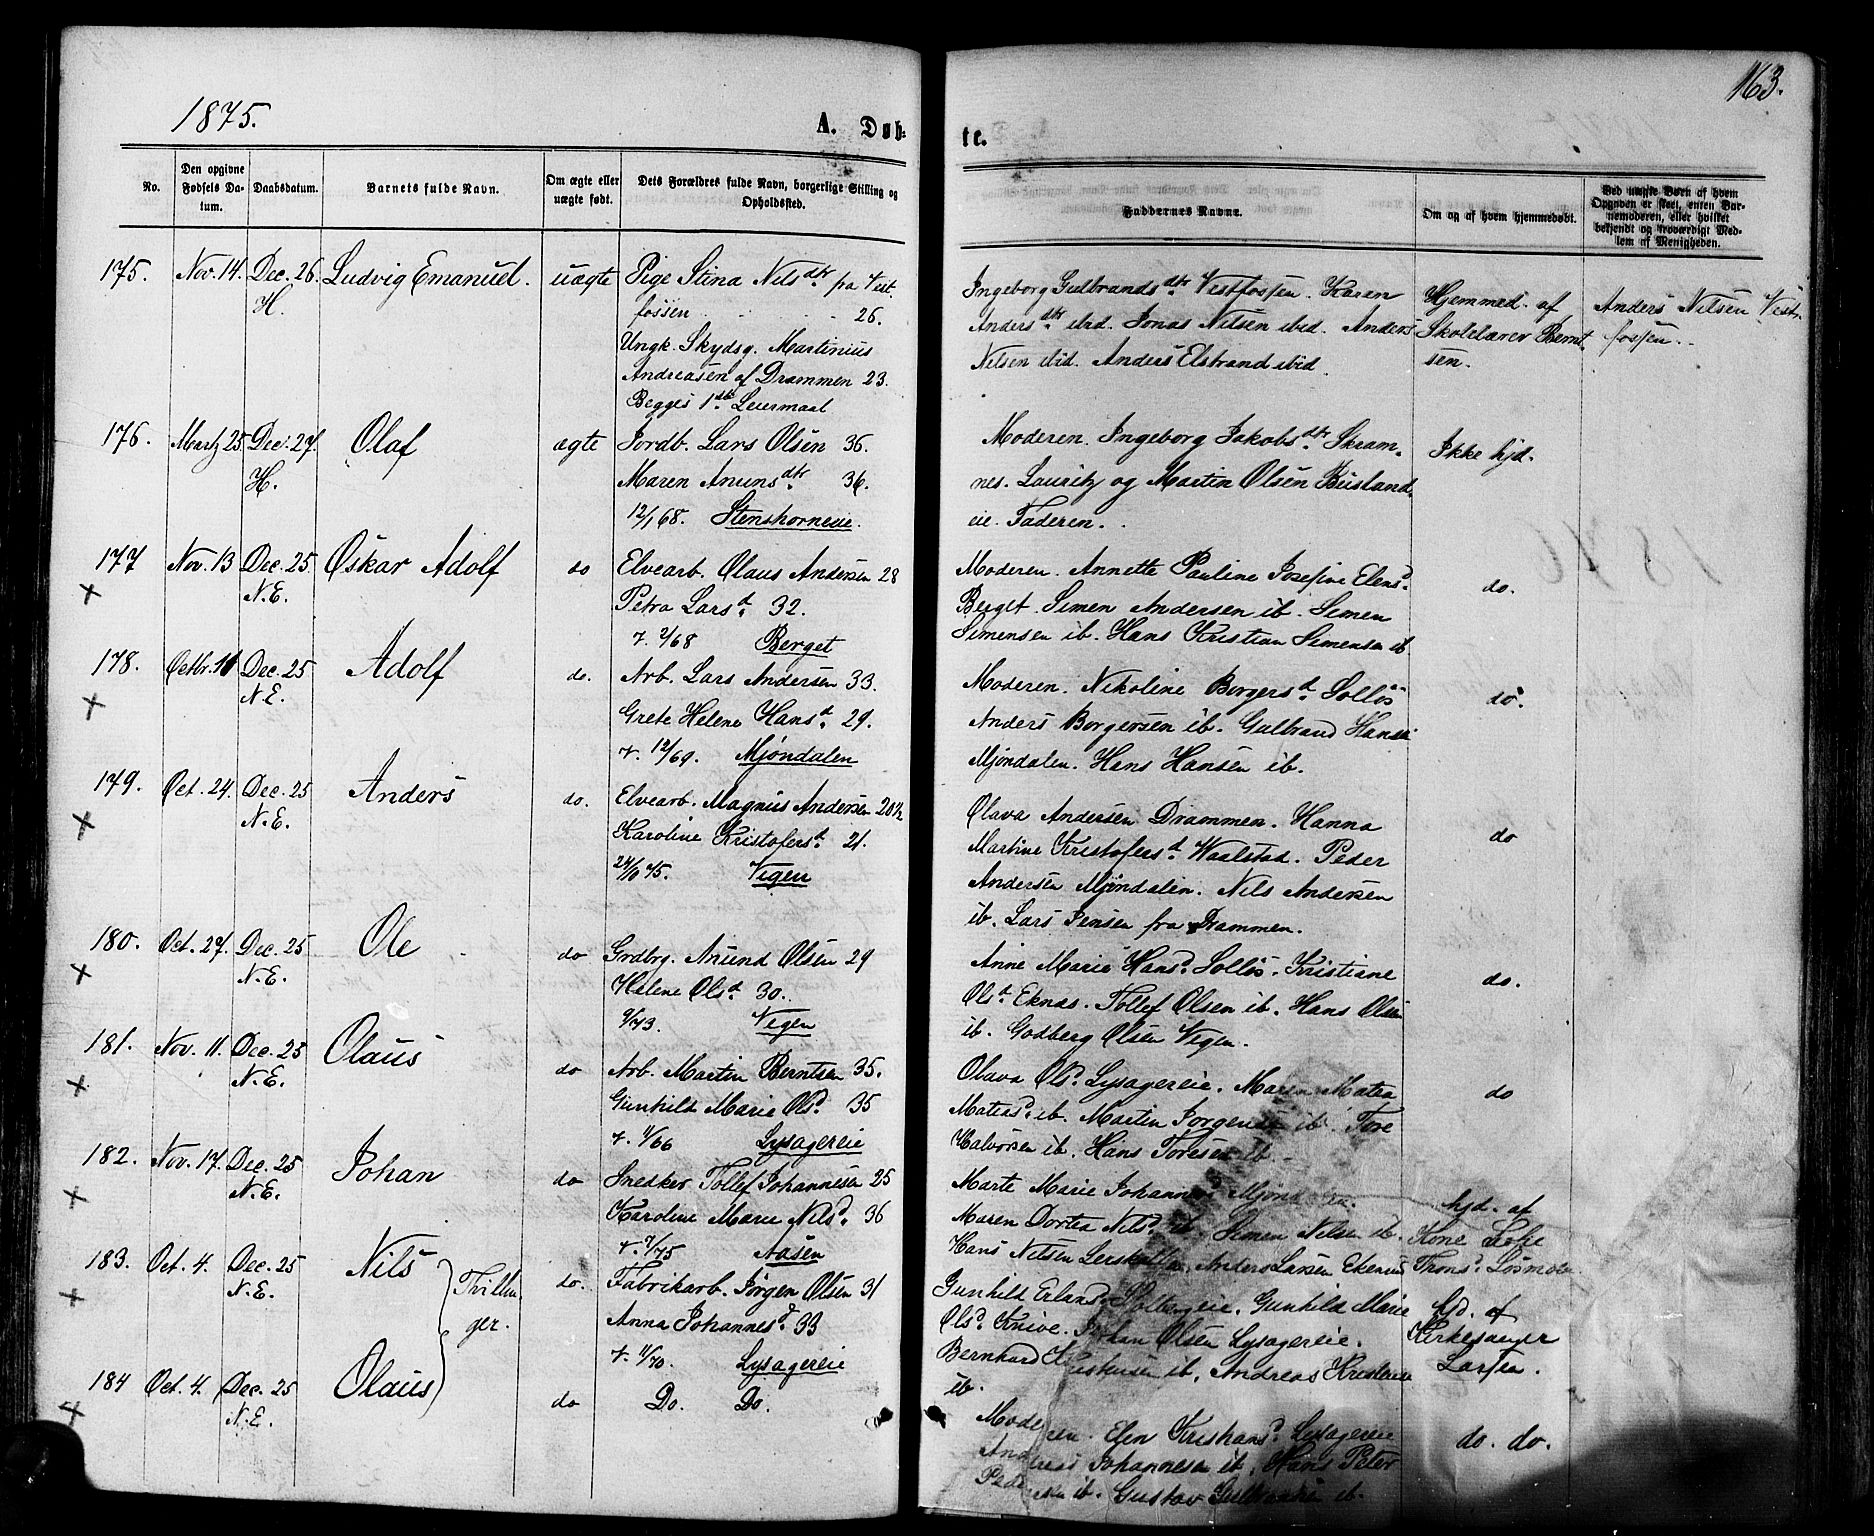 1875.
A. Døb-
te.
163.
No.
Den opgivne Fødsels Da-tum.
Daabsdatum.
Barnets fulde Navn.
Om ægte eller uægte født.
Dets Forældres fulde Navn, borgerlige Stilling og Opholdsted.
Faddernes Navne.
Om og af hvem hjemmedøbt.
Ved uægte Børn af hvem Opgaven er skeet, enten Bar-nemoderen, eller hvilket bekjendt og troværdigt Med-lem af Menigheden.
175. Nov. 14. Dec. 26. H. Ludvig Emanuel. uægte
Pige Stina Nilsdtr fra Vest-
fossen 26.
Ungk. Skydsg. Martinius
Andreasen af Drammen 23.
Begges 1ste Leiermaal
Ingeborg Gulbrandsdtr Vestfossen. Karen
Andersdtr ibid. Jonas Nilsen ibid. Anders
Nilsen ibid. Anders Elstrand ibid.
Hjemmed. af
Skolelærer Bernt-
sen.
Anders Nilsen Vest-
fossen.
176. Martz 25 Dec. 27. H. Olaf ægte
Jordb. Lars Olsen 36.
Maren Anunsdtr 36.
12/1 68. Stenshorneie.
Moderen. Ingeborg Jakobsdtr Skram-
nes. Lauritz og Martin Olsen Buskand
eie. Faderen.
Ikke hjd.
177 Nov. 13 Dec. 25 N.E. Oskar Adolf do
x
Elvearb. Olaus Andersen 28
Petra Larsd. 32.
v. 2/68 Berget
Moderen. Annette Pauline Josefine Elensd.
Berget. Simen Andersen ib. Simen
Simensen ib. Hans Kristian Simensen ib
do.
178. Octbr. 11 Dec. 25 N.E. Adolf do.
x
Arb. Lars Andersen 33.
Grete Helene Hansd. 29.
v. 12/69. Mjøndalen
Moderen. Nikoline Borgersd. Solløs
Anders Borgersen ib. Gulbrand Hansen
Mjøndalen. Hans Hansen ib.
do.
179. Oct. 24. Dec. 25 N.E. Anders do.
x
Elvearb. Magnus Andersen 20½
Karoline Kristofersd. 21.
75. Vegen
Olava Andersen Drammen. Hanna
Martine Kristofersd. Waalstad. Peder
Andersen Mjøndalen. Nils Andersen
ib. Lars Jensen fra Drammen.
do
180. Oct. 27. Dec. 25 N.E. Ole do
x
Grdbrg. Anund Olsen 29
Helene Olsd. 30.
9/73. Vegen
Anne Marie Hansd. Solløs. Kristiane
Olsd. Eknæs. Tollef Olsen ib. Hans Olsen
ib. Godberg Olsen Vegen.
do.
181. Nov. 11. Dec. 25 N.E. Olaus do
x
Arb. Martin Berntsen 35.
Gunhild Marie Olsd. 35
v. 11/66 Lysagereie
Olava Olsd. Lysagereie. Maren Matea
Matiasd. ib. Martin Jørgensen ib. Tore
Halvorsen ib. Hans Toresen ib.
do
182. Nov. 17. Dec. 25 N.E. Johan do
x
Snedker Tollef Johannesen 25
Karoline Marie Nilsd. 36
v. 7/75 Aasen
Marte Marie Johannesd. Mjøndalen.
Maren Dortea Nilsd. ib. Simen Nilsen ib.
Hans Nilsen Anders Larsen Ekenæs
hjd. af
Kone
Tronsd.
183. Oct. 4. Dec. 25 N.E. Nils do.
x
Tvillin-
ger.
Fabrikarb. Jørgen Olsen 31
Anna Johannesd. 33
v. 11/70. Lysagereie
Gunhild Gunhild Marie
Olsd. Knive. Johan Olsen Lysagereie.
Bernhard ib. Andreas
ib.
hjd. af
Kirkesanger
Larsen.
184 Oct. 4. Dec. 25 N.E. Olaus do
x
Do. Do.
Moderen. Elen Kristiansd. Lysagereie
Andreas Johannesen ib. Hans Peter
Pedersen ib. Gustav Gulbransen ib.
do. do.